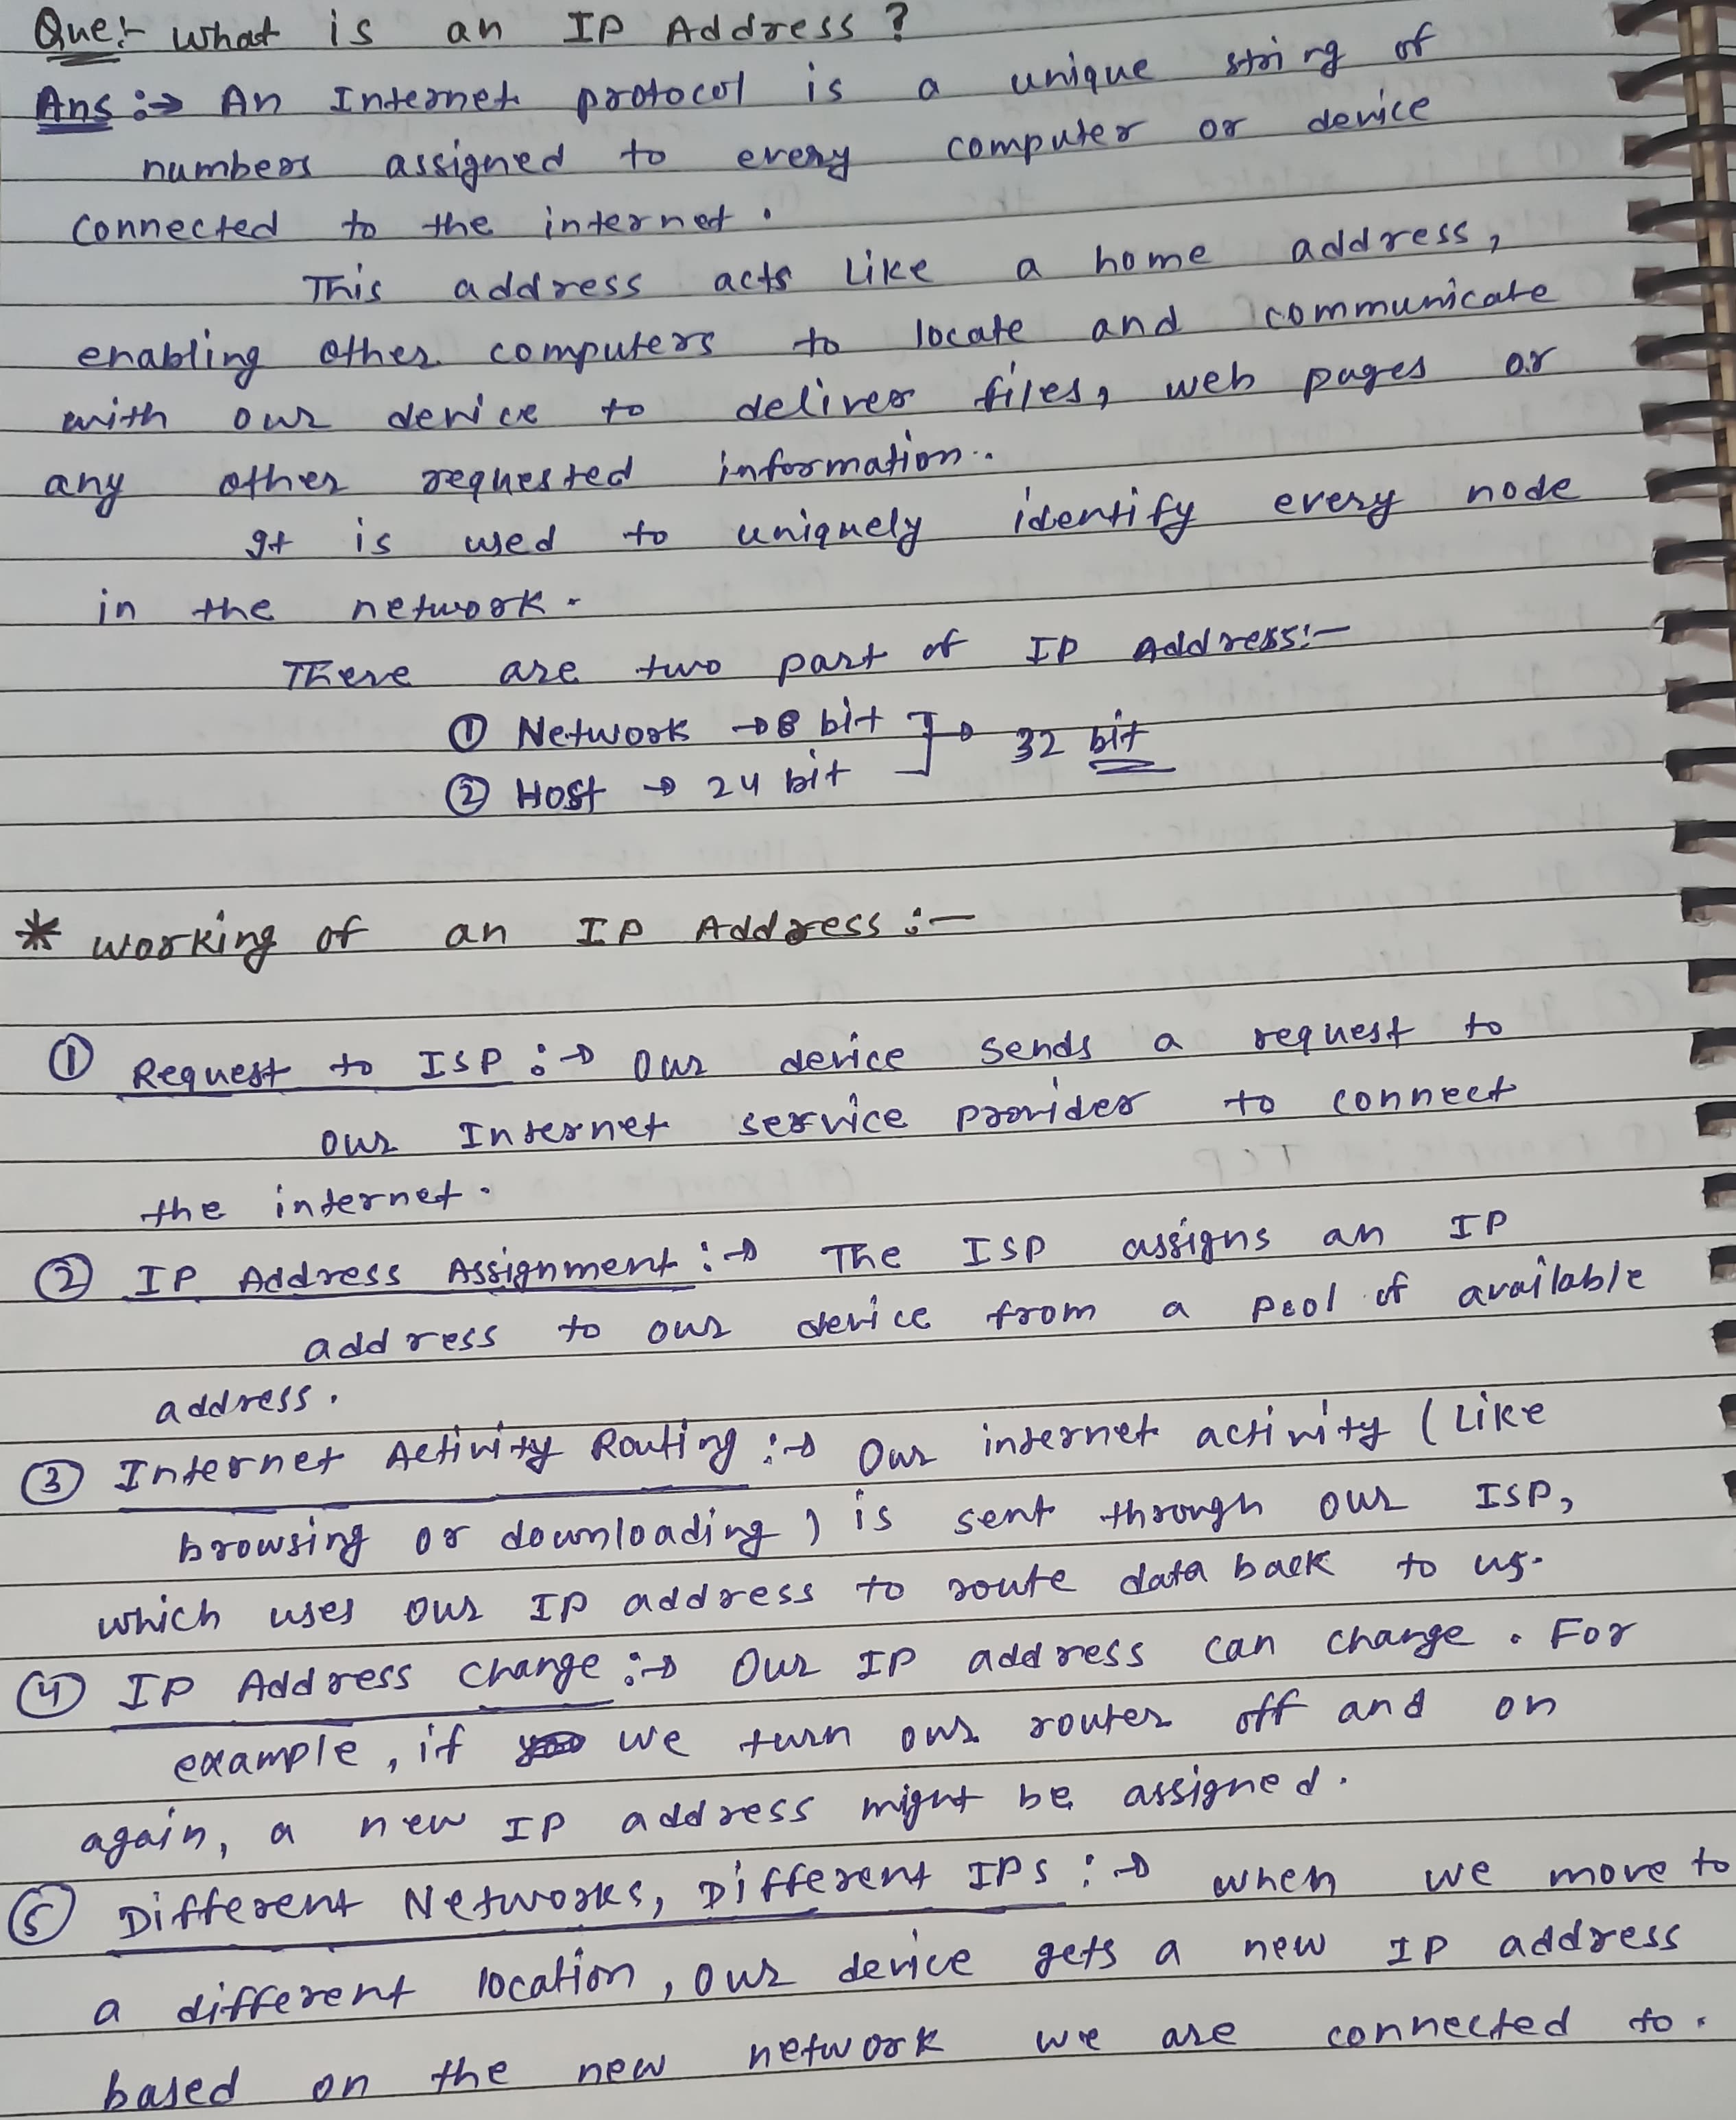 Que:- What is an IP Address ?
Ans :→ An Internet protocol is a unique string of
numbers assigned to every computer or device
connected to the internet.
This address acts like a home address,
enabling other computers to locate and communicate
with our device to deliver files, web pages or
any other requested information..
It is used to uniquely identify every node
in the network.
There are two part of IP Address:-
① Network → 8 bit ]→ 32 bit
② Host → 24 bit
* Working of an IP Address :-
① Request to ISP :→ Our device sends a request to
our Internet service provider to connect
the internet.
② IP Address Assignment :→ The ISP assigns an IP
address to our device from a pool of available
address.
③ Internet Activity Routing :→ Our internet activity (Like
browsing or downloading) is sent through our ISP,
which uses our IP address to route data back to us.
④ IP Address change :→ Our IP address can change. For
example, if we turn our router off and on
again, a new IP address might be assigned.
⑤ Different Networks, Different IPs :→ when we move to
a different location, our device gets a new IP address
based on the new network we are connected to.